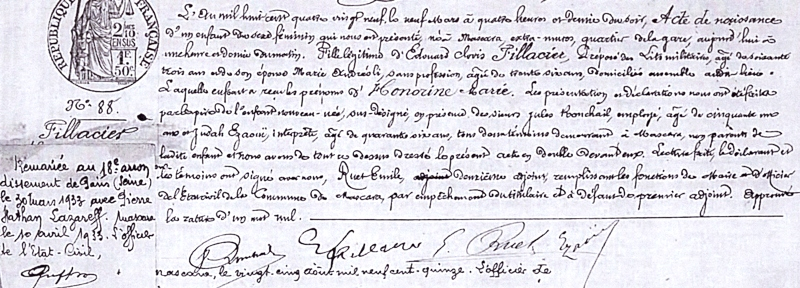 RÉPUBLIQUE FRANÇAISE
2/10 EN SUS
1F 50c
No 88.
Fillacier
Remariée au 18e arron
dissement de Paris (Seine)
le 30 mars 1933 avec Pierre
Nathan Lazareff. Mascara
le 10 avril 1933. L'officier
de l'Etat-Civil,
L'An mil huit cent quatre vingt neuf, le neuf Mars à quatre heures et demie du soir, Acte de naissance
d'un enfant du sexe féminin qui nous est présenté, né à Mascara extra-muros, quartier de la gare, aujourd'hui à
une heure et demie du matin. Fille légitime d'Edouard Clovis Fillacier, Préposé des Lits militaires, âgé de soixante
trois ans et de son épouse Marie, sans profession, âgée de trente six ans, domiciliés ensemble au dit lieu.
Laquelle enfant a reçu les prénoms d'Honorine Marie. Les présentation et déclaration nous ont été faites
par le père de l'enfant nouveau-née, sus-désigné, en présence des sieurs Jules, employé, âgé de cinquante un
ans et Judah, interprète, âgé de quarante six ans, tous deux témoins demeurant à Mascara, non parents de
ladite enfant et nous avons de tout ce dessus dressé le présent acte en double devant eux. Lecture faite, le déclarant et
les témoins ont signé avec nous, Ruet Emile, adjoint deuxième adjoint, remplissant les fonctions de Maire et d'officier
de l'Etat civil de la Commune de Mascara, par empêchement du titulaire et à défaut de premier adjoint. Approuvé
la rature d'un mot nul.
E Fillacier E. Ruet
Mascara, le vingt cinq août mil neuf cent quinze. L'officier de